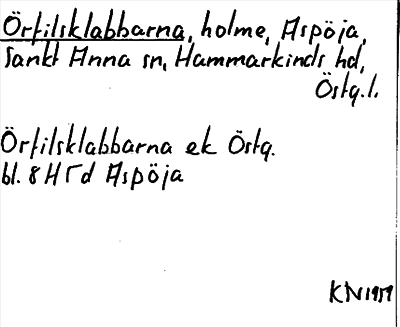 Örfilsklabbarna, holme, Aspöja,
Sankt Anna sn, Hammarkinds hd,
Östg.l.
Örfilsklabbarna ek Östg.
bl. 8 H Γ d Aspöja
KN 1959